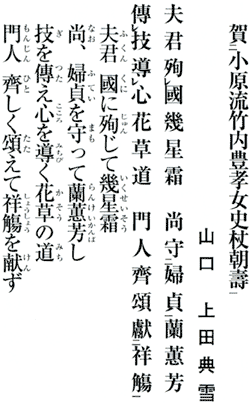 賀㆓小原流竹内豊孝女史杖朝壽㆒
山口 上田典雪
夫君殉㆑國幾星霜 尚守㆓婦貞㆒蘭蕙芳
傳㆑技導㆑心花草道 門人齊頌獻㆓祥觴㆒
夫君 國に殉じて幾星霜
ふくん くに じゅん いくせいそう
尚、婦貞を守って蘭蕙芳し
なお ふてい まも らんけいかんば
技を傳え心を導く花草の道
ぎ つた こころ みちび かそう みち
門人 齊しく頌えて祥觴を献ず
もんじん ひと たた しょうしょう けん